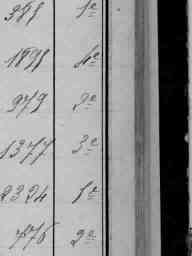 388 1e
1898 4e
979 2e
1377 3e
2324 1e
776 2e